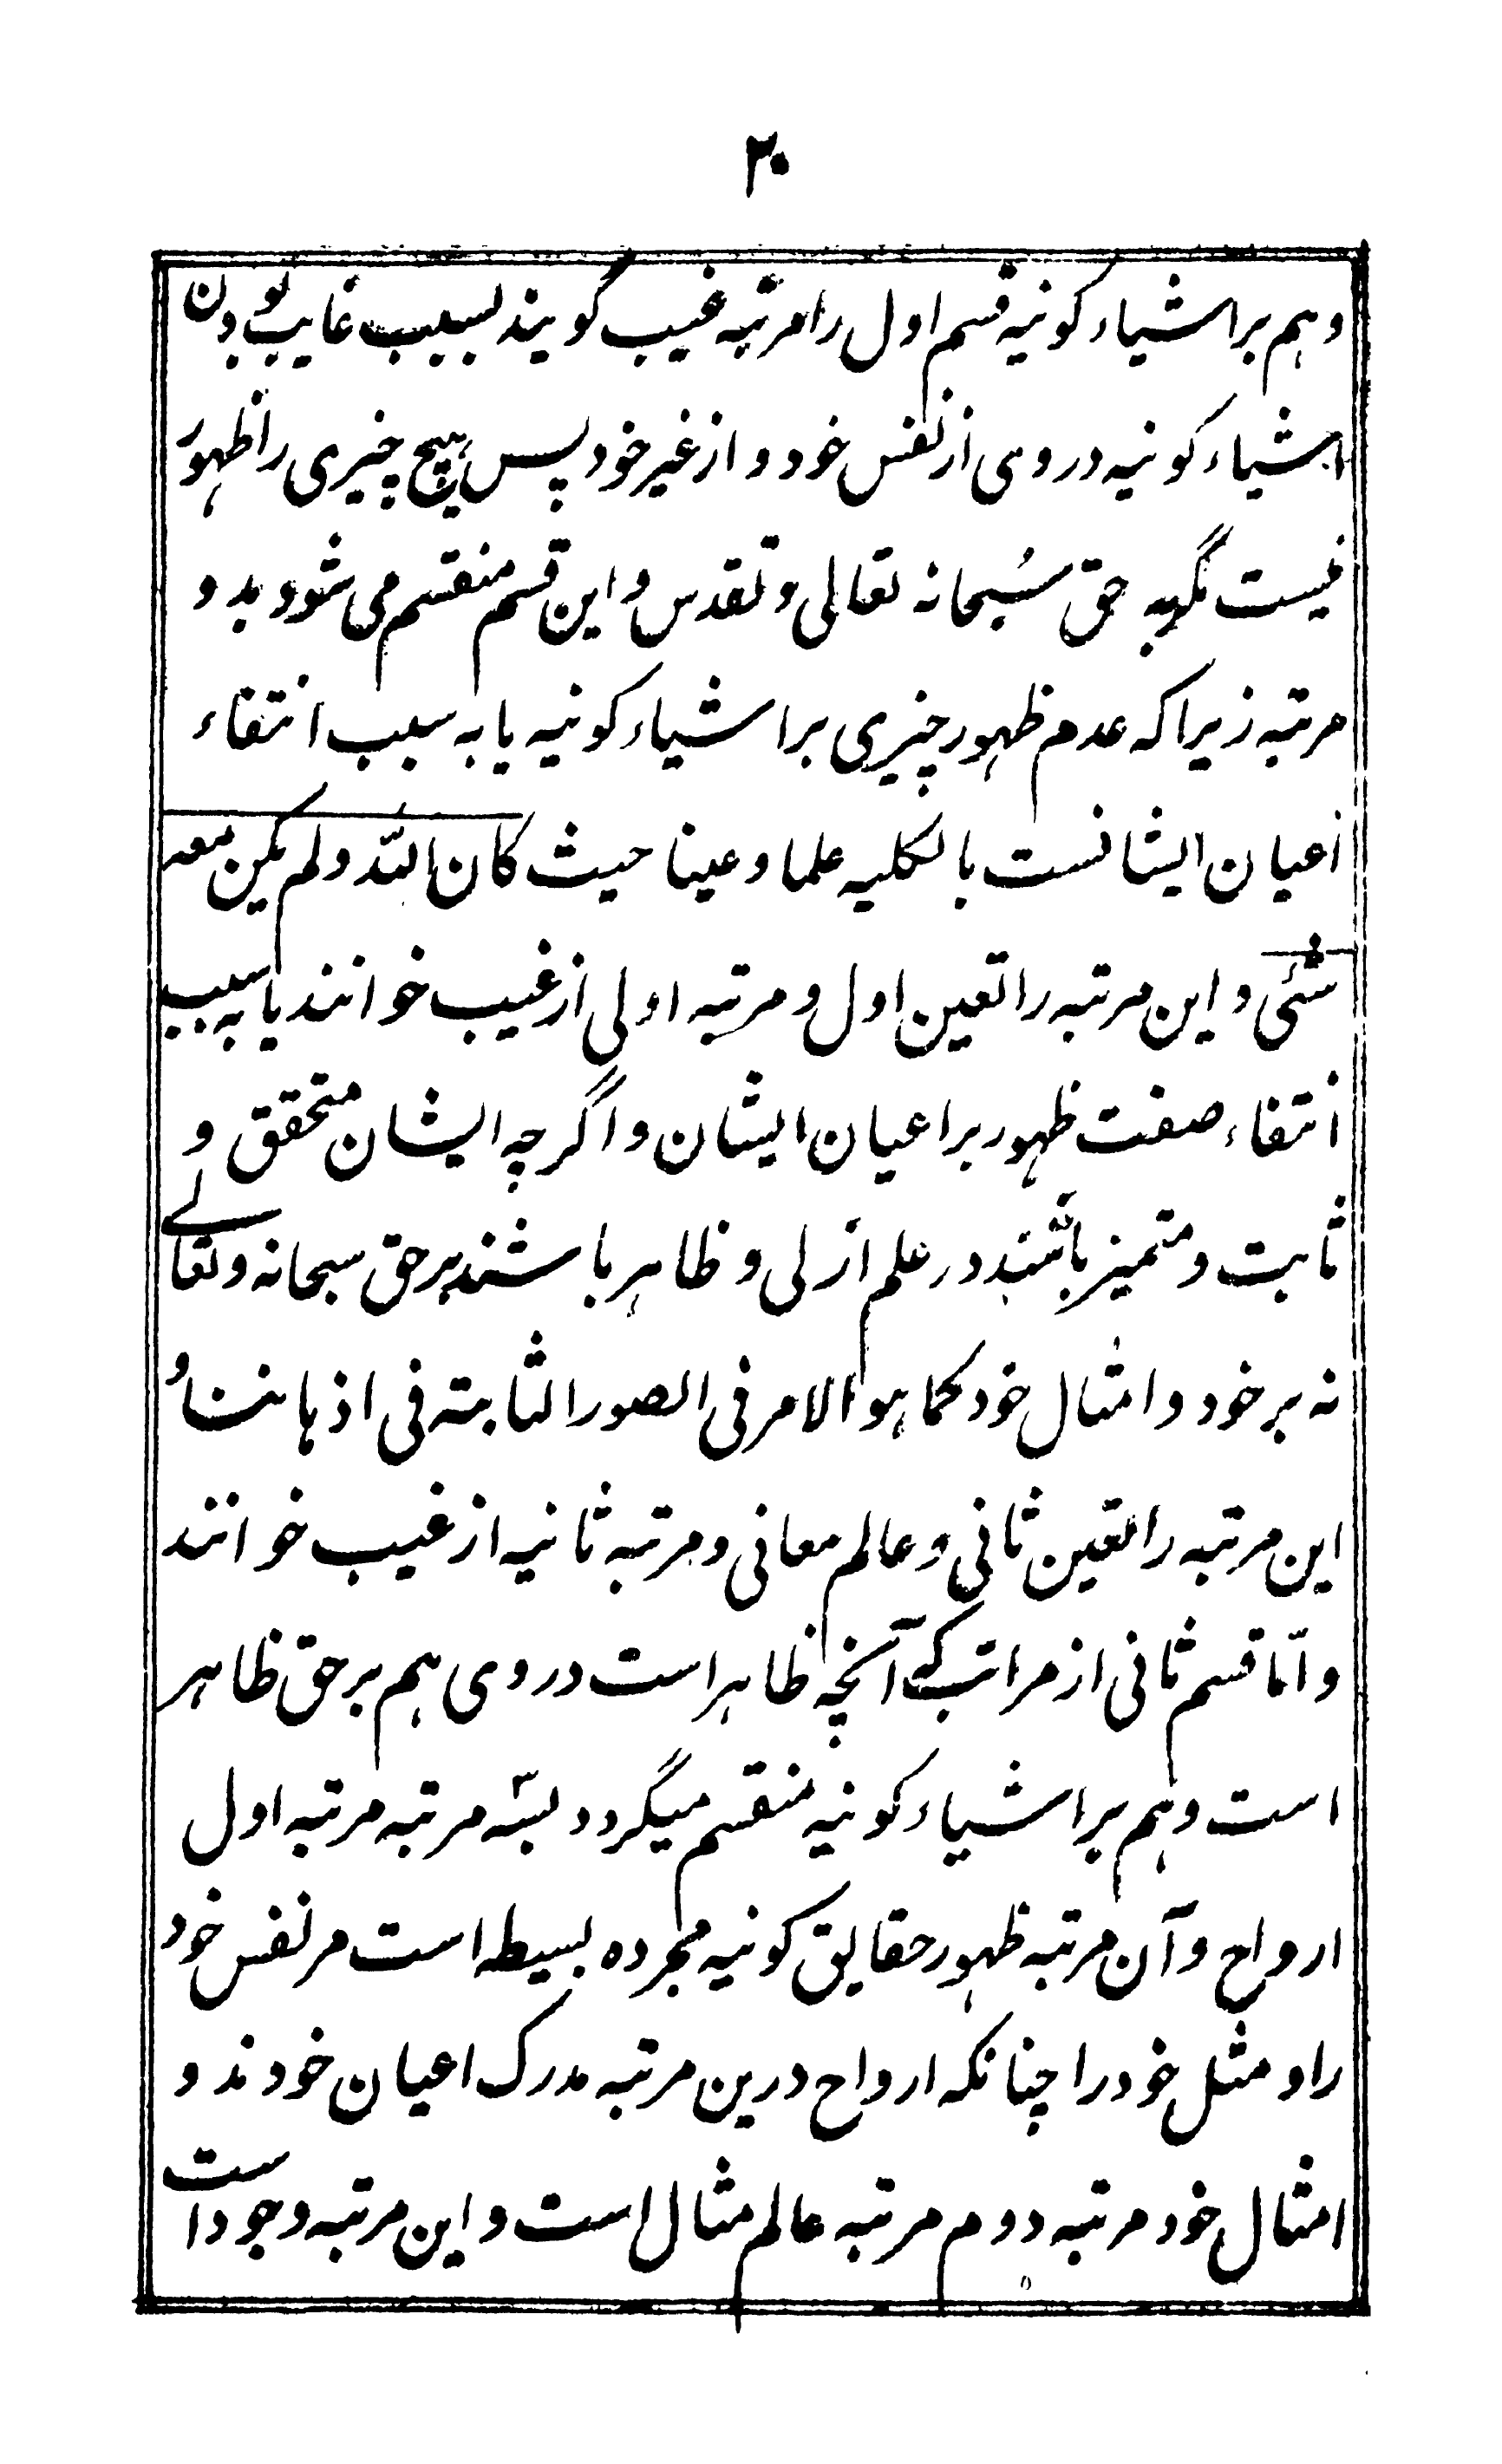 ۲۰
وهم بر اشیاء کونیه قسم اول را مرتبه غیب گویند بسبب غایب بودن
اشیاء کونیه در وی از نفس خود و از غیر خود پس هیچ چیزی را ظهور
نیست مگر به حق سُبحانه تعالی و تقدس و این قسم منقسم می شود بدو
مرتبه زیرا که عدم ظهور چیزی بر اشیاء کونیه یا به سبب انتفاء
اعیان ایشانست بالکلیه علما و عینا حیث کان الله ولم یکن معه
شئی و این مرتبه را تعین اول و مرتبه اولی از غیب خوانند یا به سبب
انتفاء صفت ظهور بر اعیان ایشان و اگرچه ایشان متحقق و
ثابت و متمیز باشند در علم ازلی و ظاهر باشند بر حق سبحانه و تعالے
نه بر خود و امثال خود کما هو الامر فی الصور الثابته فی اذهاننا و
این مرتبه را تعین ثانی و عالم معانی و مرتبه ثانیه از غیب خوانند
و امّا قسم ثانی از مراتب که آنچه ظاهر است در وی هم بر حق ظاهر
است وهم بر اشیاء کونیه منقسم میگردد بسّه مرتبه مرتبه اول
ارواح و آن مرتبه ظهور حقایق کونیه مجرده بسیطه است مر نفس خود
را و مثل خود را چنانکه ارواح درین مرتبه مدرک اعیان خودند و
امثال خود مرتبه دوم مرتبه عالم مثال است و این مرتبه وجود است